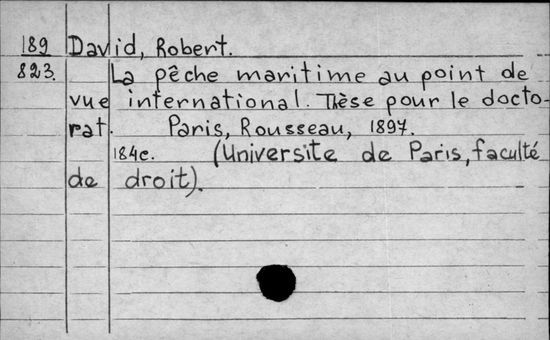 189 David, Robert.
823. La pêche maritime au point de
vue international. Thèse pour le docto-
rat. Paris, Rousseau, 1897.
184c. (Universite de Paris, faculté
de droit).